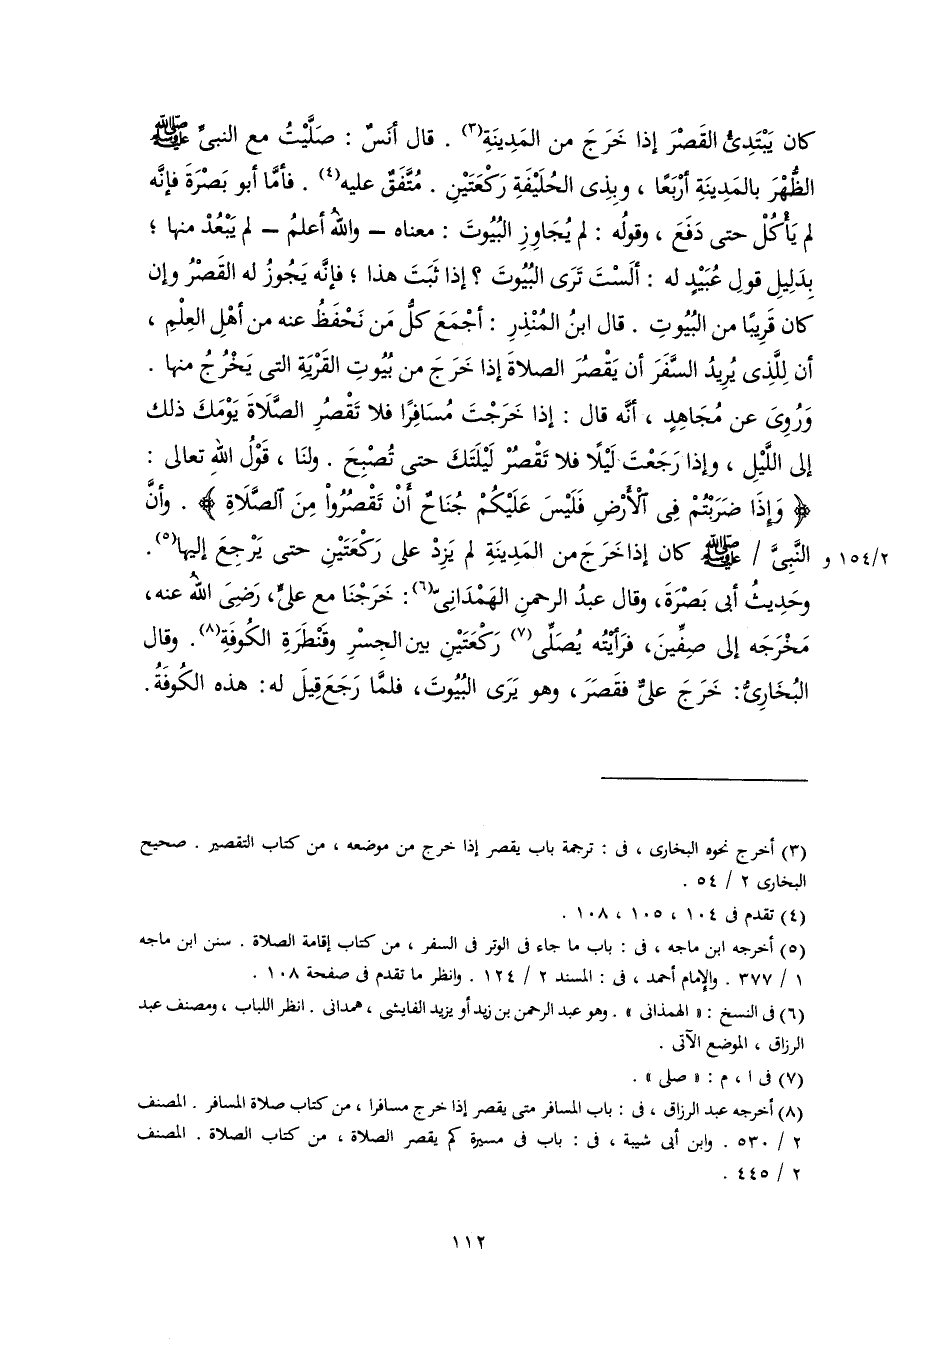 كان يَبْتَدِئُ القَصْرَ إذا خَرَجَ من المَدِينَةِ(٣) . قال أنَسٌ : صَلَّيْتُ مع النبىِّ ﷺ
الظُّهْرَ بالمَدِينَةِ أرْبَعًا ، وبِذِى الحُلَيْفَةِ رَكْعَتَيْنِ . مُتَّفَقٌ عليه(٤) . فأمَّا أبو بَصْرَةَ فإنَّه
لم يَأْكُلْ حتى دَفَعَ ، وقولُه : لم يُجَاوِزِ البُيُوتَ : معناه – واللهُ أعلمُ – لم يَبْعُدْ منها ؛
بِدَلِيلِ قولِ عُبَيْدٍ له : ألَسْتَ تَرَى البُيُوتَ ؟ إذا ثَبَتَ هذا ؛ فإنَّه يَجُوزُ له القَصْرُ وإن
كان قَرِيبًا من البُيُوتِ . قال ابنُ المُنْذِرِ : أجْمَعَ كلُّ مَن نَحْفَظُ عنه من أهْلِ العِلْمِ ،
أن لِلَّذِى يُرِيدُ السَّفَرَ أن يَقْصُرَ الصلاةَ إذا خَرَجَ من بُيُوتِ القَرْيَةِ التى يَخْرُجُ منها .
وَرُوِىَ عن مُجَاهِدٍ ، أنَّه قال : إذا خَرَجْتَ مُسَافِرًا فلا تَقْصُرِ الصَّلَاةَ يَوْمَكَ ذلك
إلى اللَّيْلِ ، وإذا رَجَعْتَ لَيْلًا فلا تَقْصُرْ لَيْلَتَكَ حتى تُصْبِحَ . ولنَا ، قَوْلُ اللهِ تعالى :
﴿ وَإِذَا ضَرَبْتُمْ فِى ٱلْأَرْضِ فَلَيْسَ عَلَيْكُمْ جُنَاحٌ أَنْ تَقْصُرُواْ مِنَ ٱلصَّلَاةِ ﴾ . وأنَّ
٢/١٥٤ و النَّبِىَّ / ﷺ كان إذا خَرَجَ من المَدِينَةِ لم يَزِدْ على رَكْعَتَيْنِ حتى يَرْجِعَ إليها(٥).
وحَدِيثُ أبى بَصْرَةَ، وقال عبدُ الرحمنِ الهَمْدَانِىّ(٦): خَرَجْنَا مع علىٍّ، رَضِىَ اللهُ عنه،
مَخْرَجَه إلى صِفِّينَ، فرَأَيْتُه يُصَلِّى(٧) رَكْعَتَيْنِ بين الجِسْرِ وقَنْطَرَةِ الكُوفَةِ(٨). وقال
البُخَارِىُّ: خَرَجَ علىٌّ فقَصَرَ، وهو يَرَى البُيُوتَ، فلمَّا رَجَعَ قِيلَ له: هذه الكُوفَةُ.
(٣) أخرج نحوه البخارى ، فى : ترجمة باب يقصر إذا خرج من موضعه ، من كتاب التقصير . صحيح
البخارى ٢ / ٥٤ .
(٤) تقدم فى ١٠٤ ، ١٠٥ ، ١٠٨ .
(٥) أخرجه ابن ماجه ، فى : باب ما جاء فى الوتر فى السفر ، من كتاب إقامة الصلاة . سنن ابن ماجه
١ / ٣٧٧ . والإمام أحمد ، فى : المسند ٢ / ١٢٤ . وانظر ما تقدم فى صفحة ١٠٨ .
(٦) فى النسخ : « الهمذانى » . وهو عبد الرحمن بن زيد أو يزيد الفايشى ، همدانى . انظر اللباب ، ومصنف عبد
الرزاق ، الموضع الآتى .
(٧) فى ا ، م : « صلى » .
(٨) أخرجه عبد الرزاق ، فى : باب المسافر متى يقصر إذا خرج مسافرا ، من كتاب صلاة المسافر . المصنف
٢ / ٥٣٠ . وابن أبى شيبة ، فى : باب فى مسيرة كم يقصر الصلاة ، من كتاب الصلاة . المصنف
٢ / ٤٤٥ .
١١٢